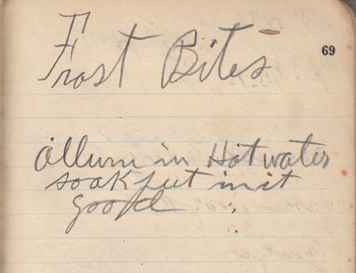 Frost Bites
69
Allum in Hot water
soak feet in it
good